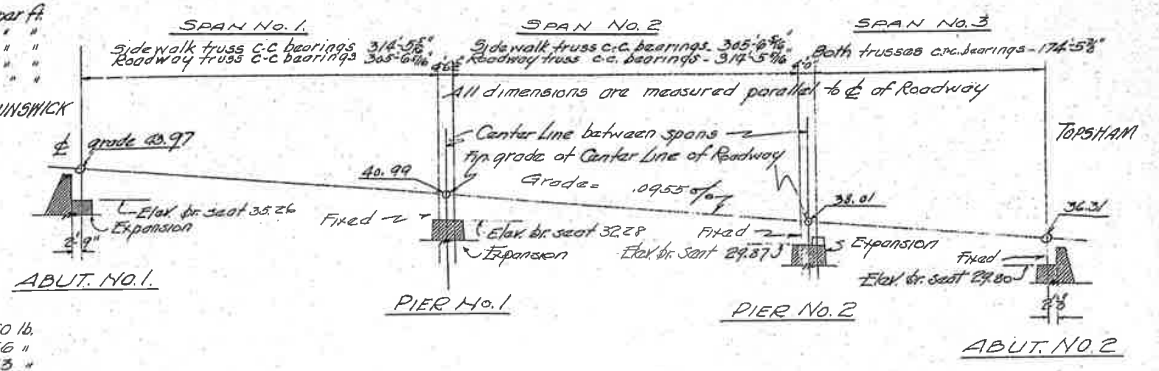 par ft.
" "
" "
" "
SPAN No. 1.
Sidewalk truss c-c bearings 314'-5 5/16"
Roadway truss c-c bearings 305'-6 5/16"
SPAN No. 2
Sidewalk truss c.c. bearings. 305'-6 5/16"
Roadway truss c.c. bearings - 314'-5 5/16"
SPAN No. 3
Both trusses c.c. bearings - 174'-5 3/8"
All dimensions are measured parallel to ℄ of Roadway
UNSWICK
TOPSHAM
℄ grade 43.97
Center Line between spans
Fin. grade at Center Line of Roadway
40.99
Grade= .0955 %
38.01
36.31
Elev. br. seat 35.26
Expansion
2'-9"
Fixed
Elev. br. seat 32.28
Expansion
Fixed
Elev. br. seat 29.87
Expansion
Fixed
Elev. br. seat 29.80
ABUT. NO. 1.
PIER NO. 1
PIER NO. 2
ABUT. NO. 2
0 lb.
6 "
3 "